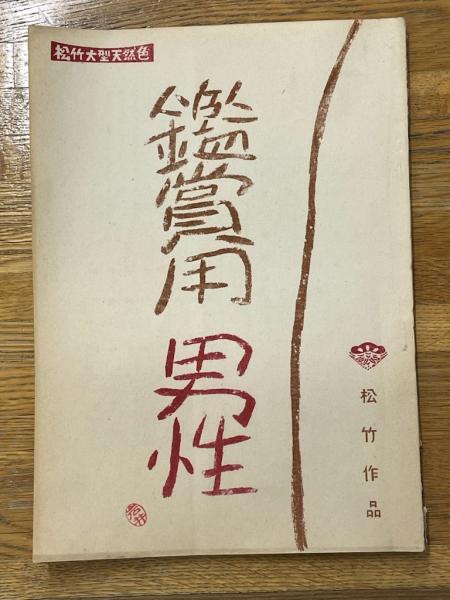 松竹大型天然色
鑑賞用
男性
松竹作品